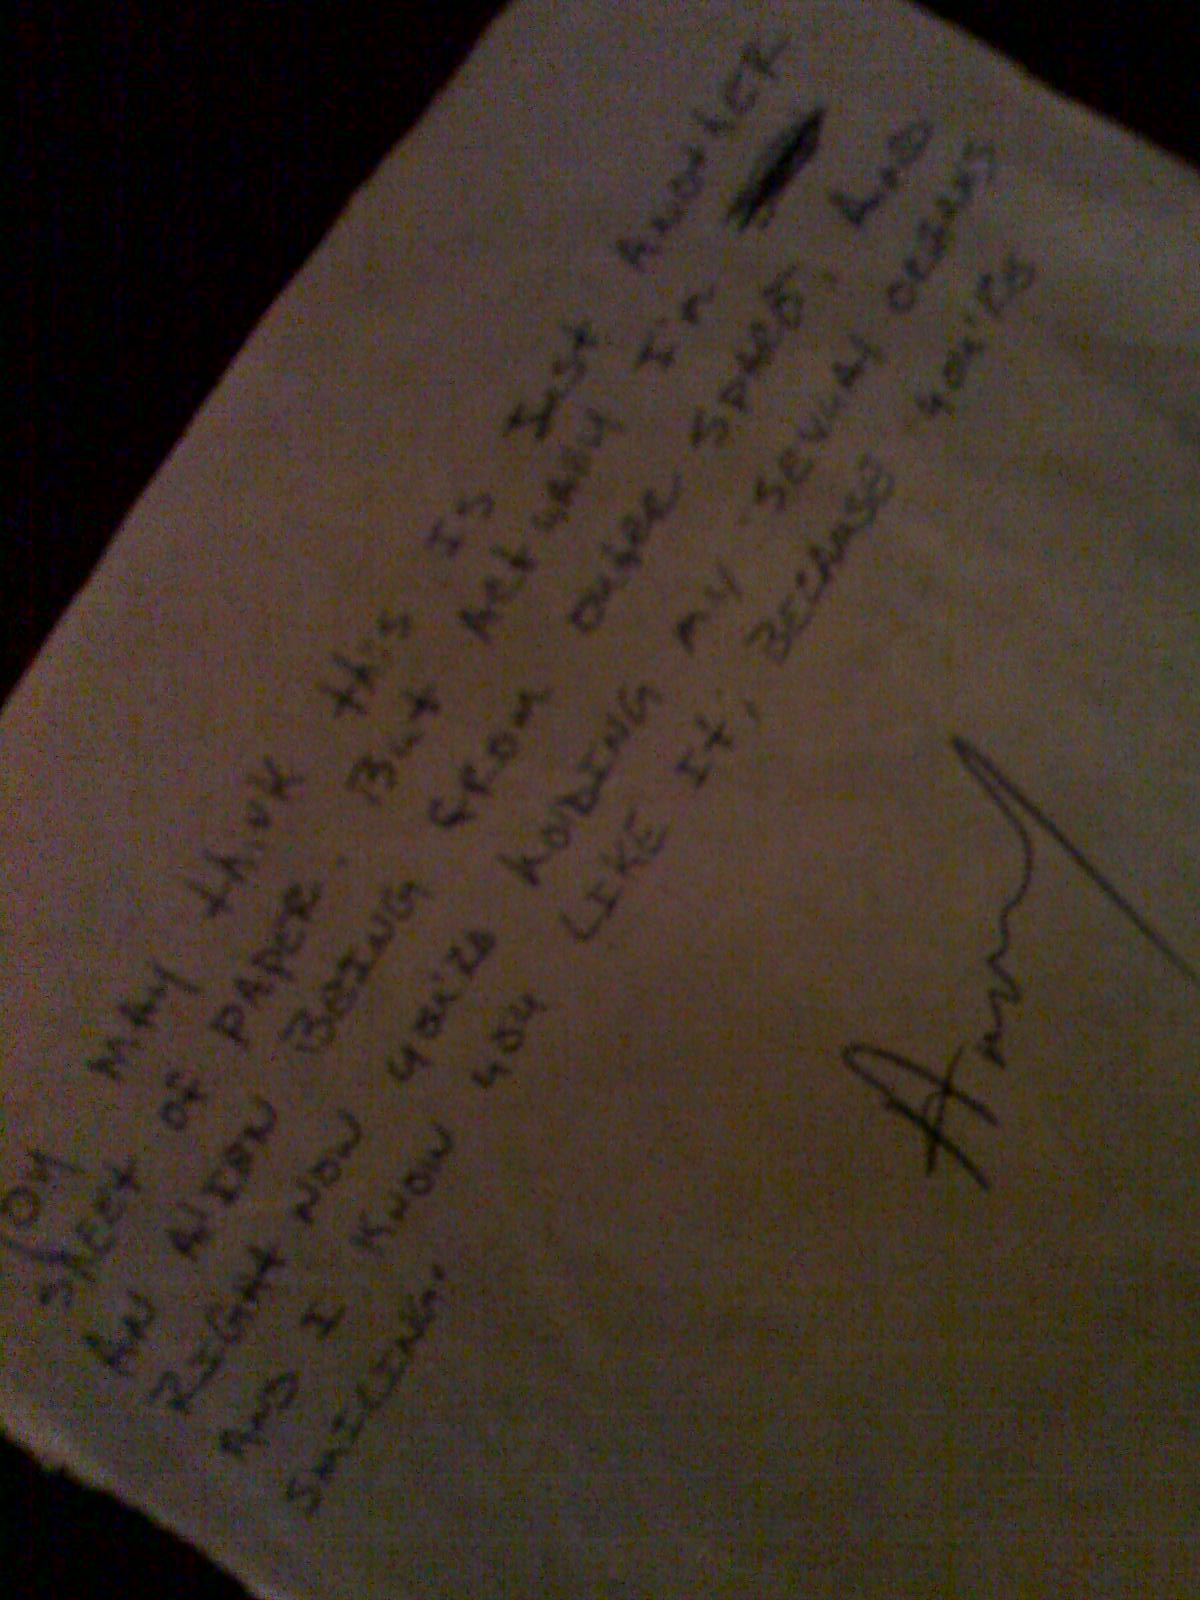 You May think this Is Just Another
sheet of PAPER. But Actually I'm
AN Alien BEING From outer Space, And
RIGHT NOW you're HOLDING my SEXUAL ORGANS
AND I KNOW you LIKE It, BECAUSE you're
SMILING.
Amy